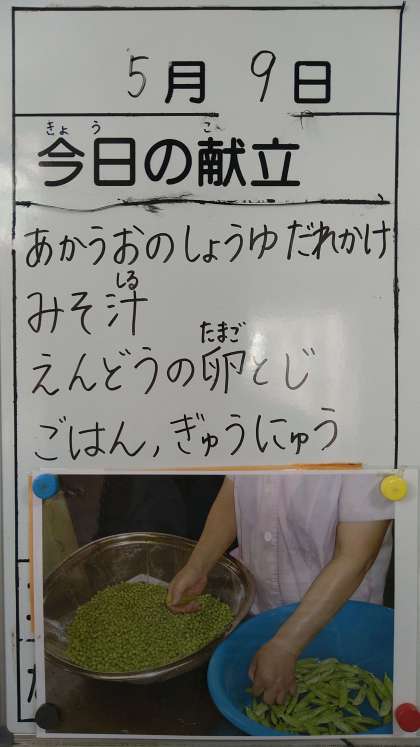 5月 9日
今日の献立
あかうおのしょうゆだれかけ
みそ汁
えんどうの卵とじ
ごはん,ぎゅうにゅう